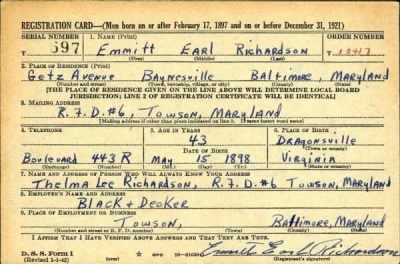 REGISTRATION CARD—(Men born on or after February 17, 1897 and on or before December 31, 1921)
SERIAL NUMBER 1. NAME (Print) ORDER NUMBER
697 Emmitt Earl Richardson 10417
(First) (Middle) (Last)
2. PLACE OF RESIDENCE (Print)
Getz Avenue Baynesville Baltimore, Maryland
(Number and street) (Town, township, village, or city) (County) (State)
[THE PLACE OF RESIDENCE GIVEN ON THE LINE ABOVE WILL DETERMINE LOCAL BOARD
JURISDICTION; LINE 2 OF REGISTRATION CERTIFICATE WILL BE IDENTICAL]
3. MAILING ADDRESS
R.F.D.#6, Towson, Maryland
[Mailing address if other than place indicated on line 2. If same insert word same]
4. TELEPHONE 5. AGE IN YEARS 6. PLACE OF BIRTH
43 Dragonsville
DATE OF BIRTH (Town or county)
Boulevard 443 R May 15 1898 Virginia
(Exchange) (Number) (Mo.) (Day) (Yr.) (State or country)
7. NAME AND ADDRESS OF PERSON WHO WILL ALWAYS KNOW YOUR ADDRESS
Thelma Lee Richardson, R.F.D.#6 Towson, Maryland
8. EMPLOYER'S NAME AND ADDRESS
Black + Decker
9. PLACE OF EMPLOYMENT OR BUSINESS
Towson, Baltimore, Maryland
(Number and street or R. F. D. number) (Town) (County) (State)
I AFFIRM THAT I HAVE VERIFIED ABOVE ANSWERS AND THAT THEY ARE TRUE.
D. S. S. Form 1 Emmitt Earl Richardson
(Revised 1-2-42) (over) GPO (Registrant's signature)